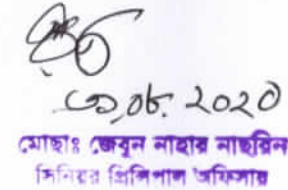 ৩১.০৮.২০২০
মোছাঃ জেবুন নাহার নাছরিন
সিনিয়র প্রিন্সিপাল অফিসার